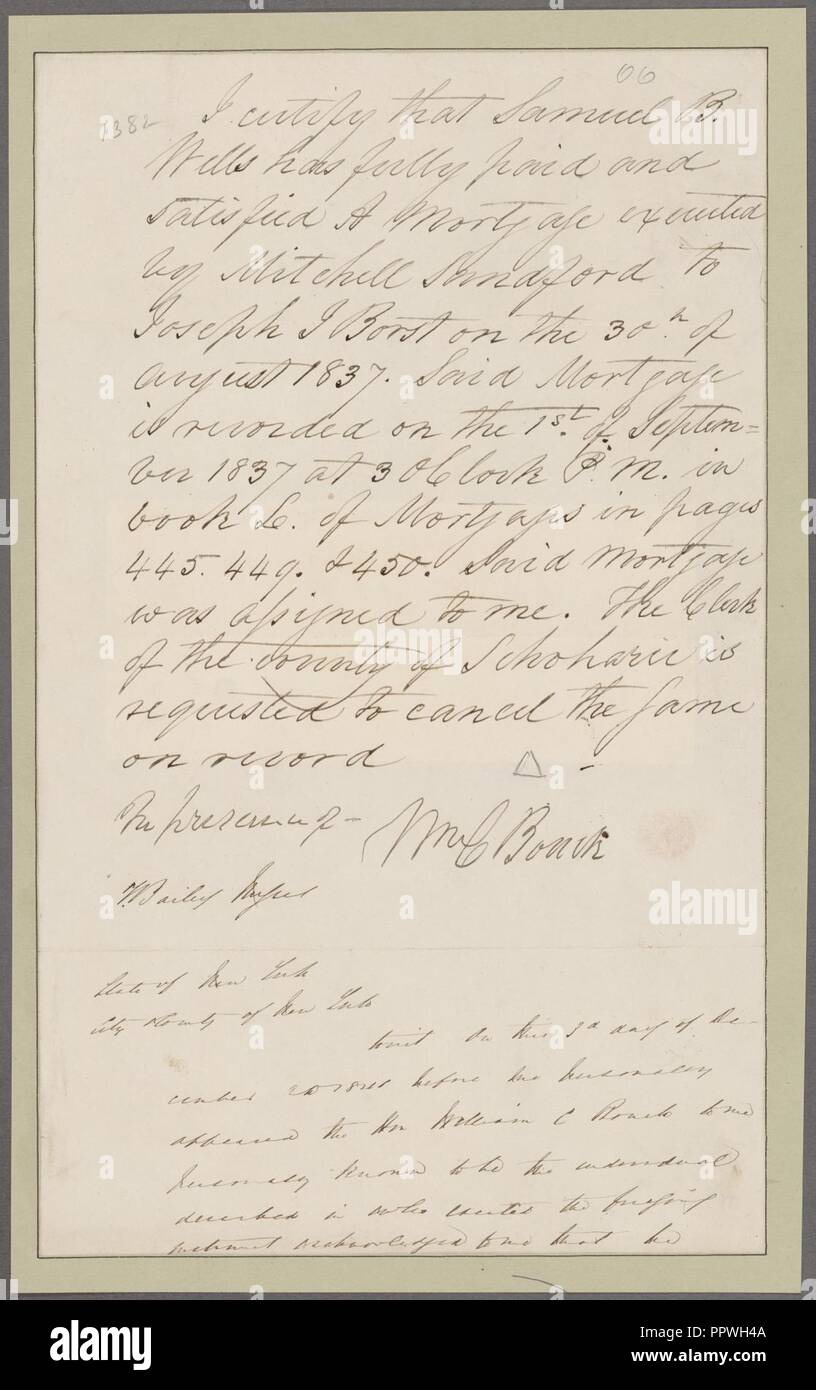 06
1382
I certify that Samuel B.
Wells has fully paid and
satisfied A Mortgage executed
by Mitchell Sandford to
Joseph I Borst on the 30th of
august 1837. Said Mortgage
is recorded on the 1st. of Septem=
ber 1837 at 3 OClock P.M. in
book L. of Mortgages in pages
445. 449. & 450. Said Mortgage
was assigned to me. The Clerk
of the county of Schoharie is
requested to cancel the same
on record
In presence of -
Wm C Bouck
Bailey
State of New York
City & County of New York
towit On this 3d day of De-
cember before me personally
appeared the Hon William C Bouck to me
personally known to be the individual
described in & who executed the foregoing
instrument & acknowledged to me that he
alamy
alamy
Image ID: PPWH4A
www.alamy.com